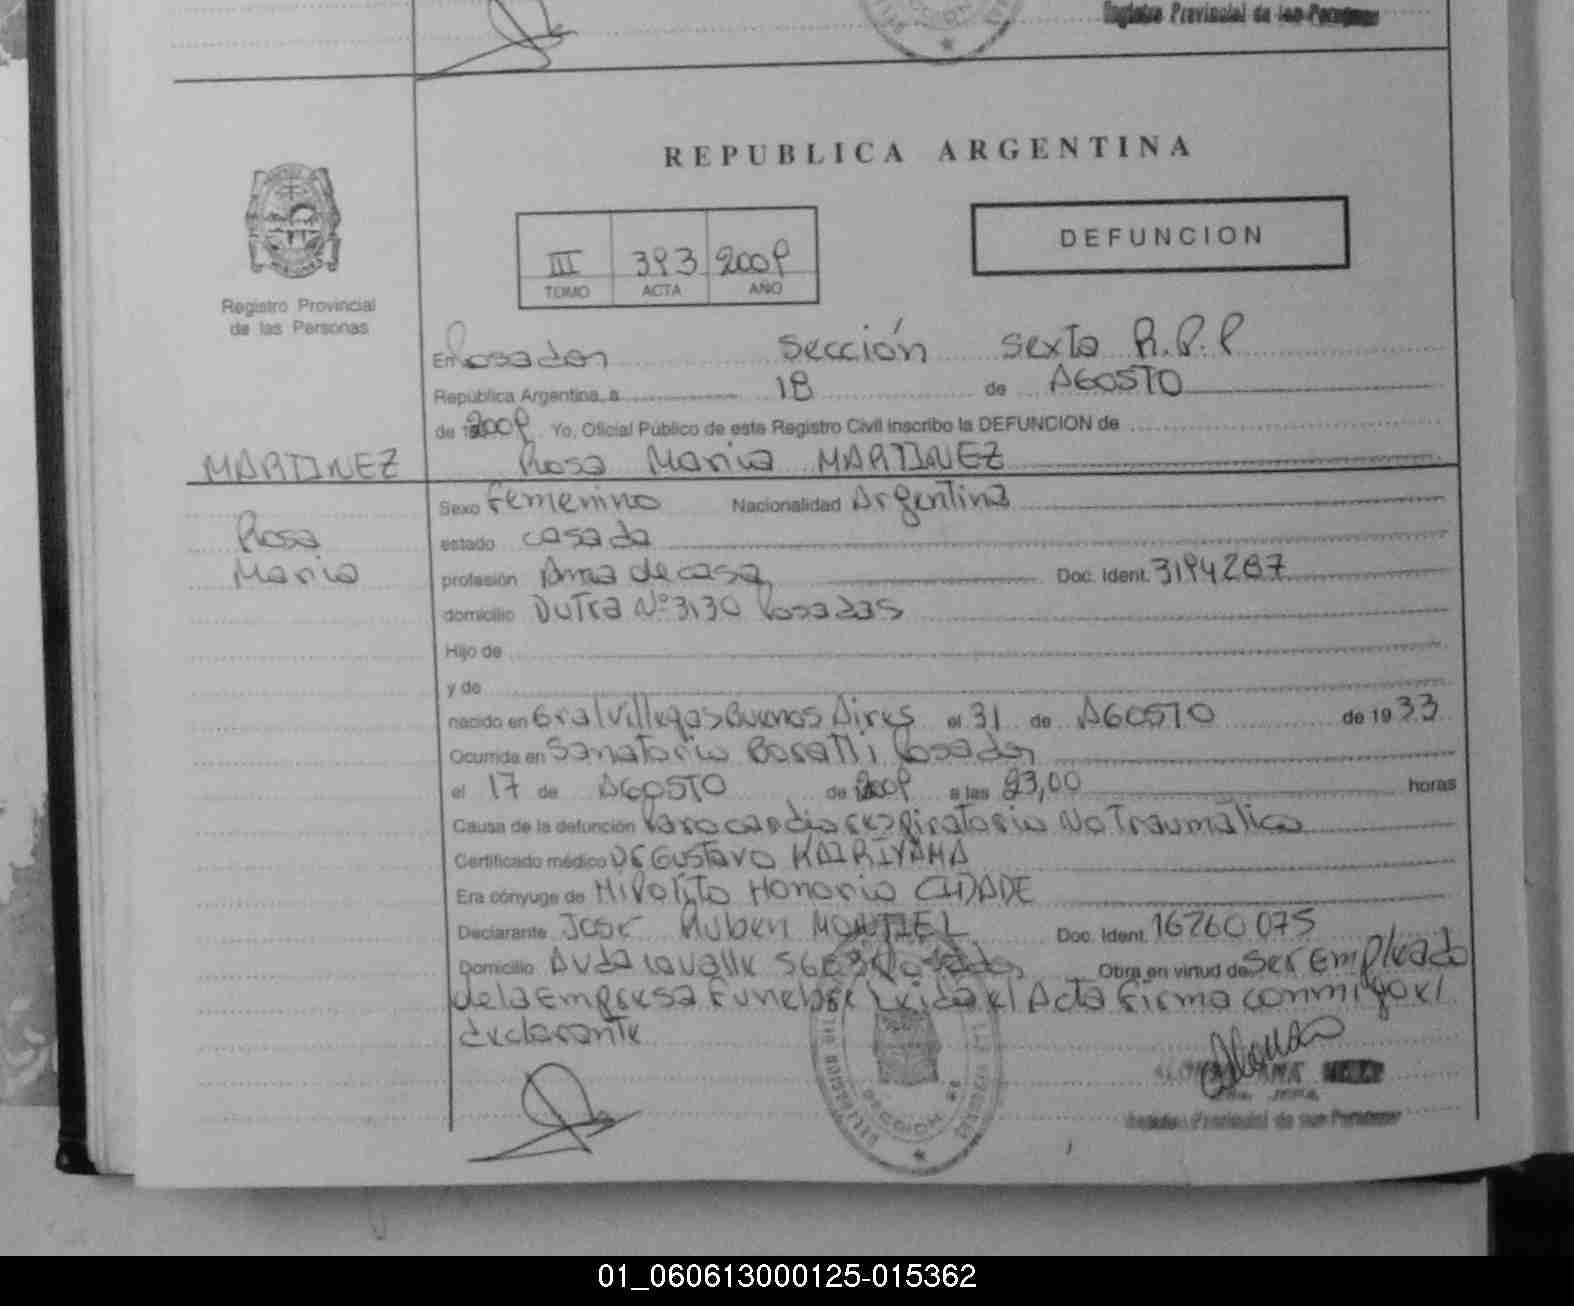 Registro Provincial de las Personas
REPUBLICA ARGENTINA
DEFUNCION
III 393 2009
TOMO ACTA AÑO
Registro Provincial
de las Personas
En Posadas Sección Sexta R.P.P
República Argentina, a 18 de AGOSTO
de 2009 Yo, Oficial Público de este Registro Civil inscribo la DEFUNCION de
MARTINEZ Rosa Maria MARTINEZ
Sexo Femenino Nacionalidad Argentina
Rosa estado casada
Maria profesión Ama de casa Doc. Ident. 3194287
domicilio Dutra Nº 3130 Posadas
Hijo de
y de
nacido en Gral Villegas Buenos Aires el 31 de AGOSTO de 1933
Ocurrida en Sanatorio Boratti Posadas
el 17 de AGOSTO de 2009 a las 23,00 horas
Causa de la defunción Paro cardio respiratorio No Traumatico
Certificado médico Dr Gustavo KAIRIYAMA
Era cónyuge de Hipolito Honorio CIDADE
Declarante José Ruben MONTIEL Doc. Ident. 16260075
Domicilio Avda Lavalle 5663 Posadas Obra en virtud de Ser Empleado
de la Empresa Funebre Leida el Acta firma conmigo el
declarante
SECCION
Registro Provincial de las Personas
01_060613000125-015362